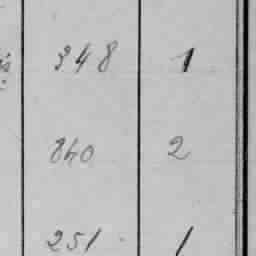 348 1
840 2
251 1